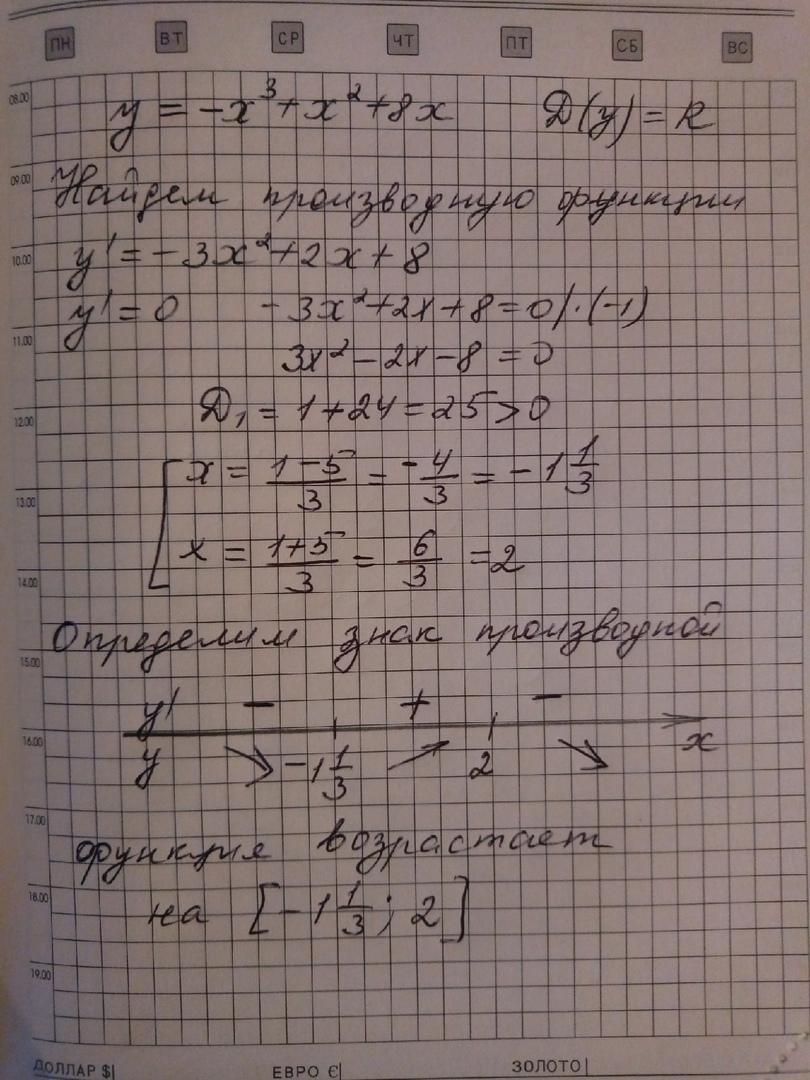 ПН ВТ СР ЧТ ПТ СБ ВС
08.00
y = -x³+x²+8x D(y) = R
09.00
Найдем производную функции
10.00
y' = -3x²+2x+8
y' = 0 -3x²+2x+8=0 |·(-1)
11.00
3x²-2x-8 = 0
12.00
D₁ = 1+24=25>0
x = (1-5)/3 = -4/3 = -1 1/3
13.00
x = (1+5)/3 = 6/3 = 2
14.00
Определим знак производной
15.00
y' - + -
16.00
y -1 1/3 2 x
17.00
функция возрастает
18.00
на [-1 1/3; 2]
19.00
ДОЛЛАР $| ЕВРО €| ЗОЛОТО|